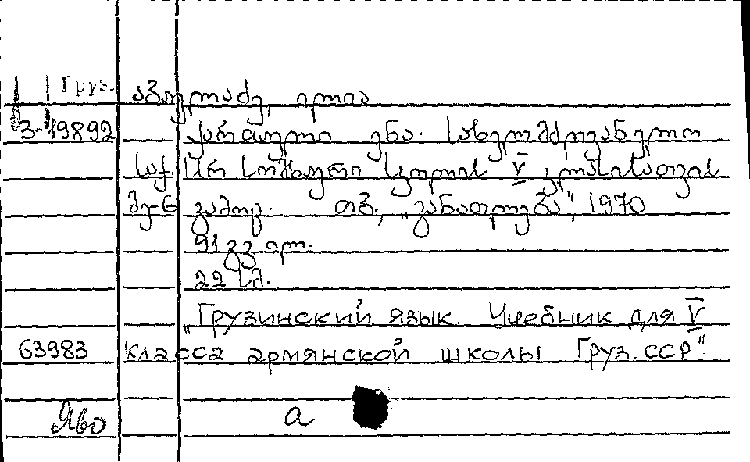 Груз. აბულაძე, ილია
3-49892 ქართული ენა. სახელმძღვანელო
საქ. სსრ სომხური სკოლის V კლასისათვის
მე-6 გამოც. თბ., „განათლება", 1970
91 გვ. ილ.
22 კპ.
„Грузинский язык. Учебник для V
63983 класса армянской школы Груз. ССР".
а